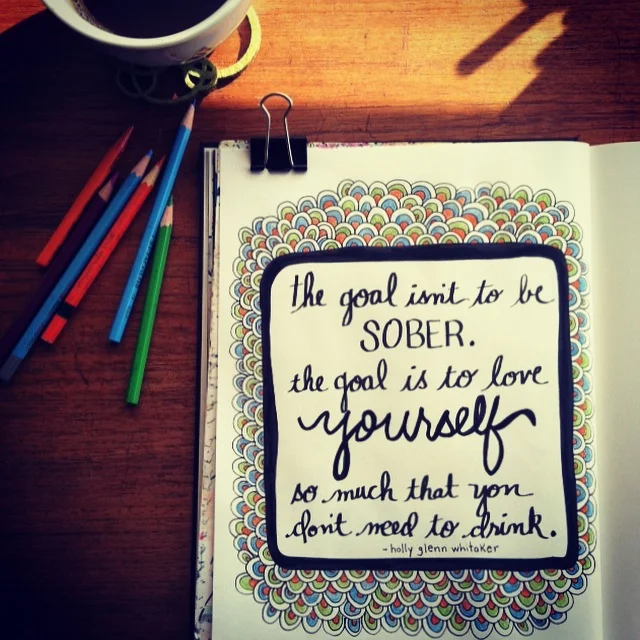 the goal isn't to be
SOBER.
the goal is to love
yourself
so much that you
don't need to drink.
- holly glenn whitaker